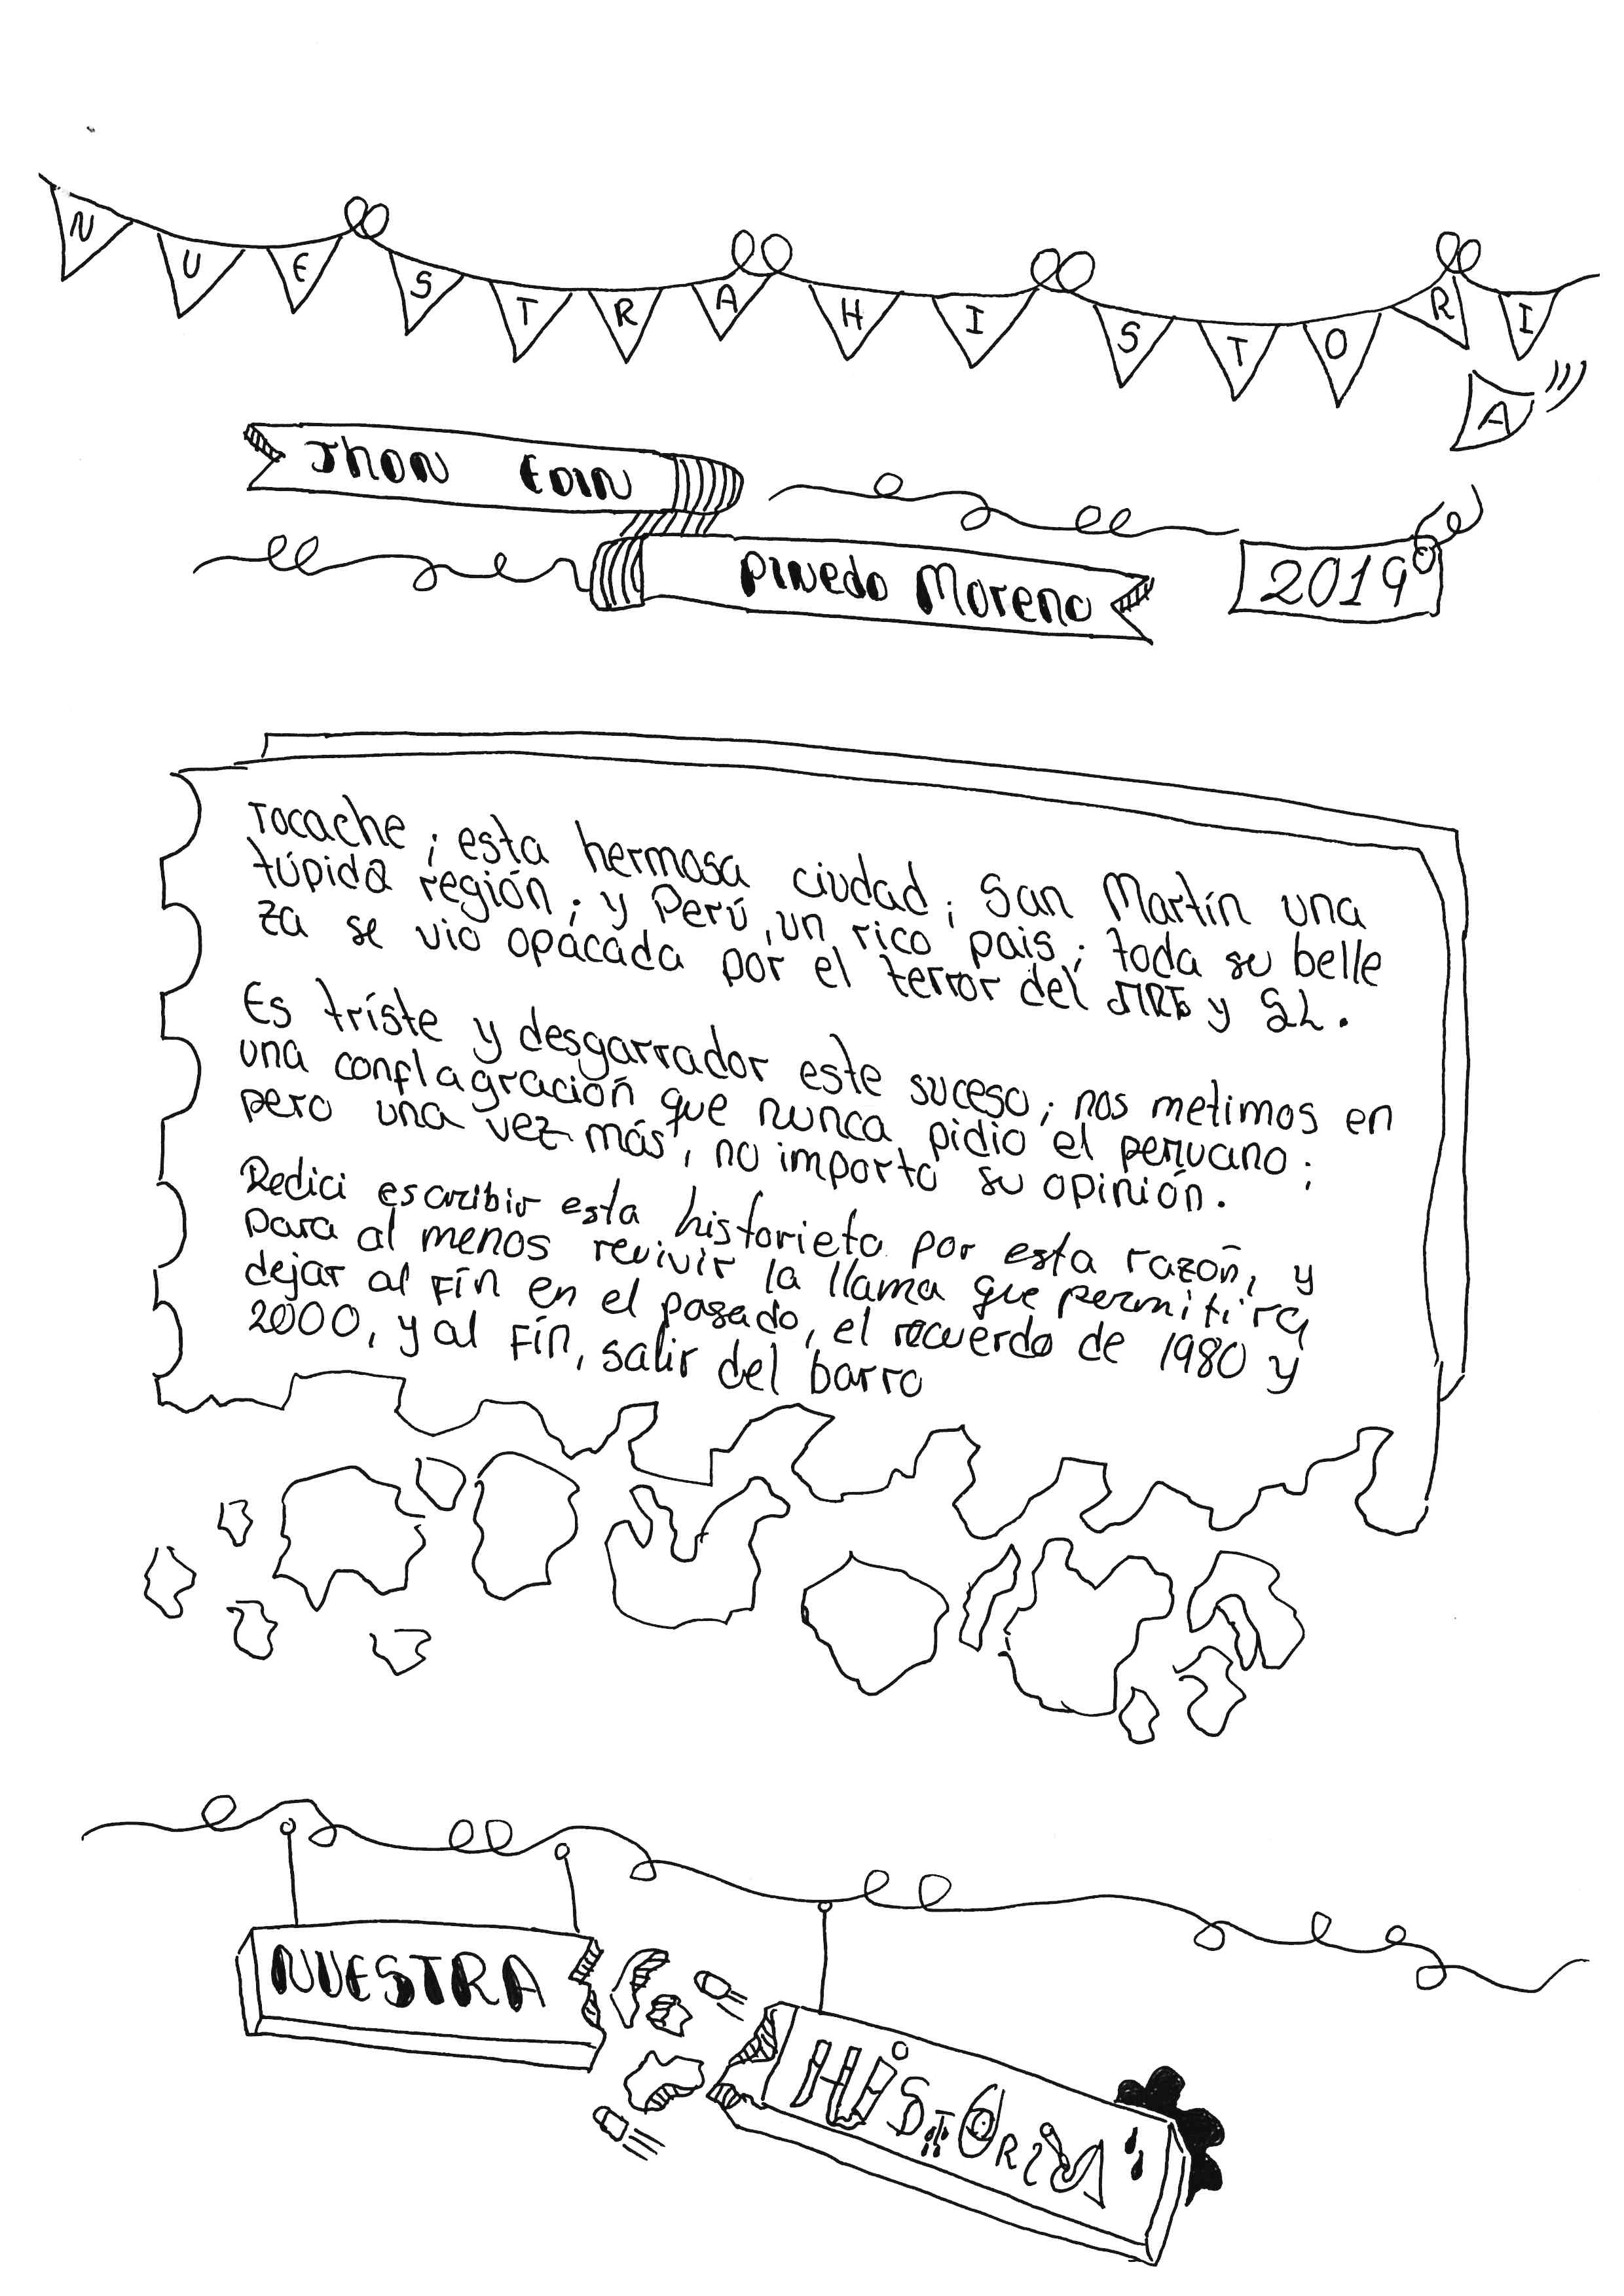 NUESTRA HISTORIA
Jhon Edin
Pinedo Moreno
2019
Tocache; esta hermosa ciudad; San Martín una
túpida región; y Perú, un rico pais; toda su belle
za se vio opacada por el terror del MRTA y SL.
Es tríste y desgarrador este suceso; nos metimos en
una conflagración que nunca pidio el peruano;
pero una vez más, no importó su opinión.
Dedici escribir esta historieta por esta razón, y
para al menos revivir la llama que permitira
dejar al Fín en el pasado, el recuerdo de 1980 y
2000, y al Fín, salir del barro
NUESTRA
HiSTORiA